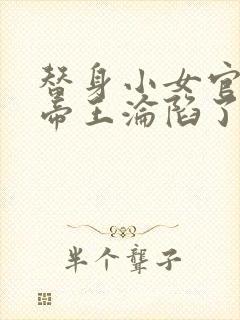 替身小女官
帝王沦陷了
半个聋子